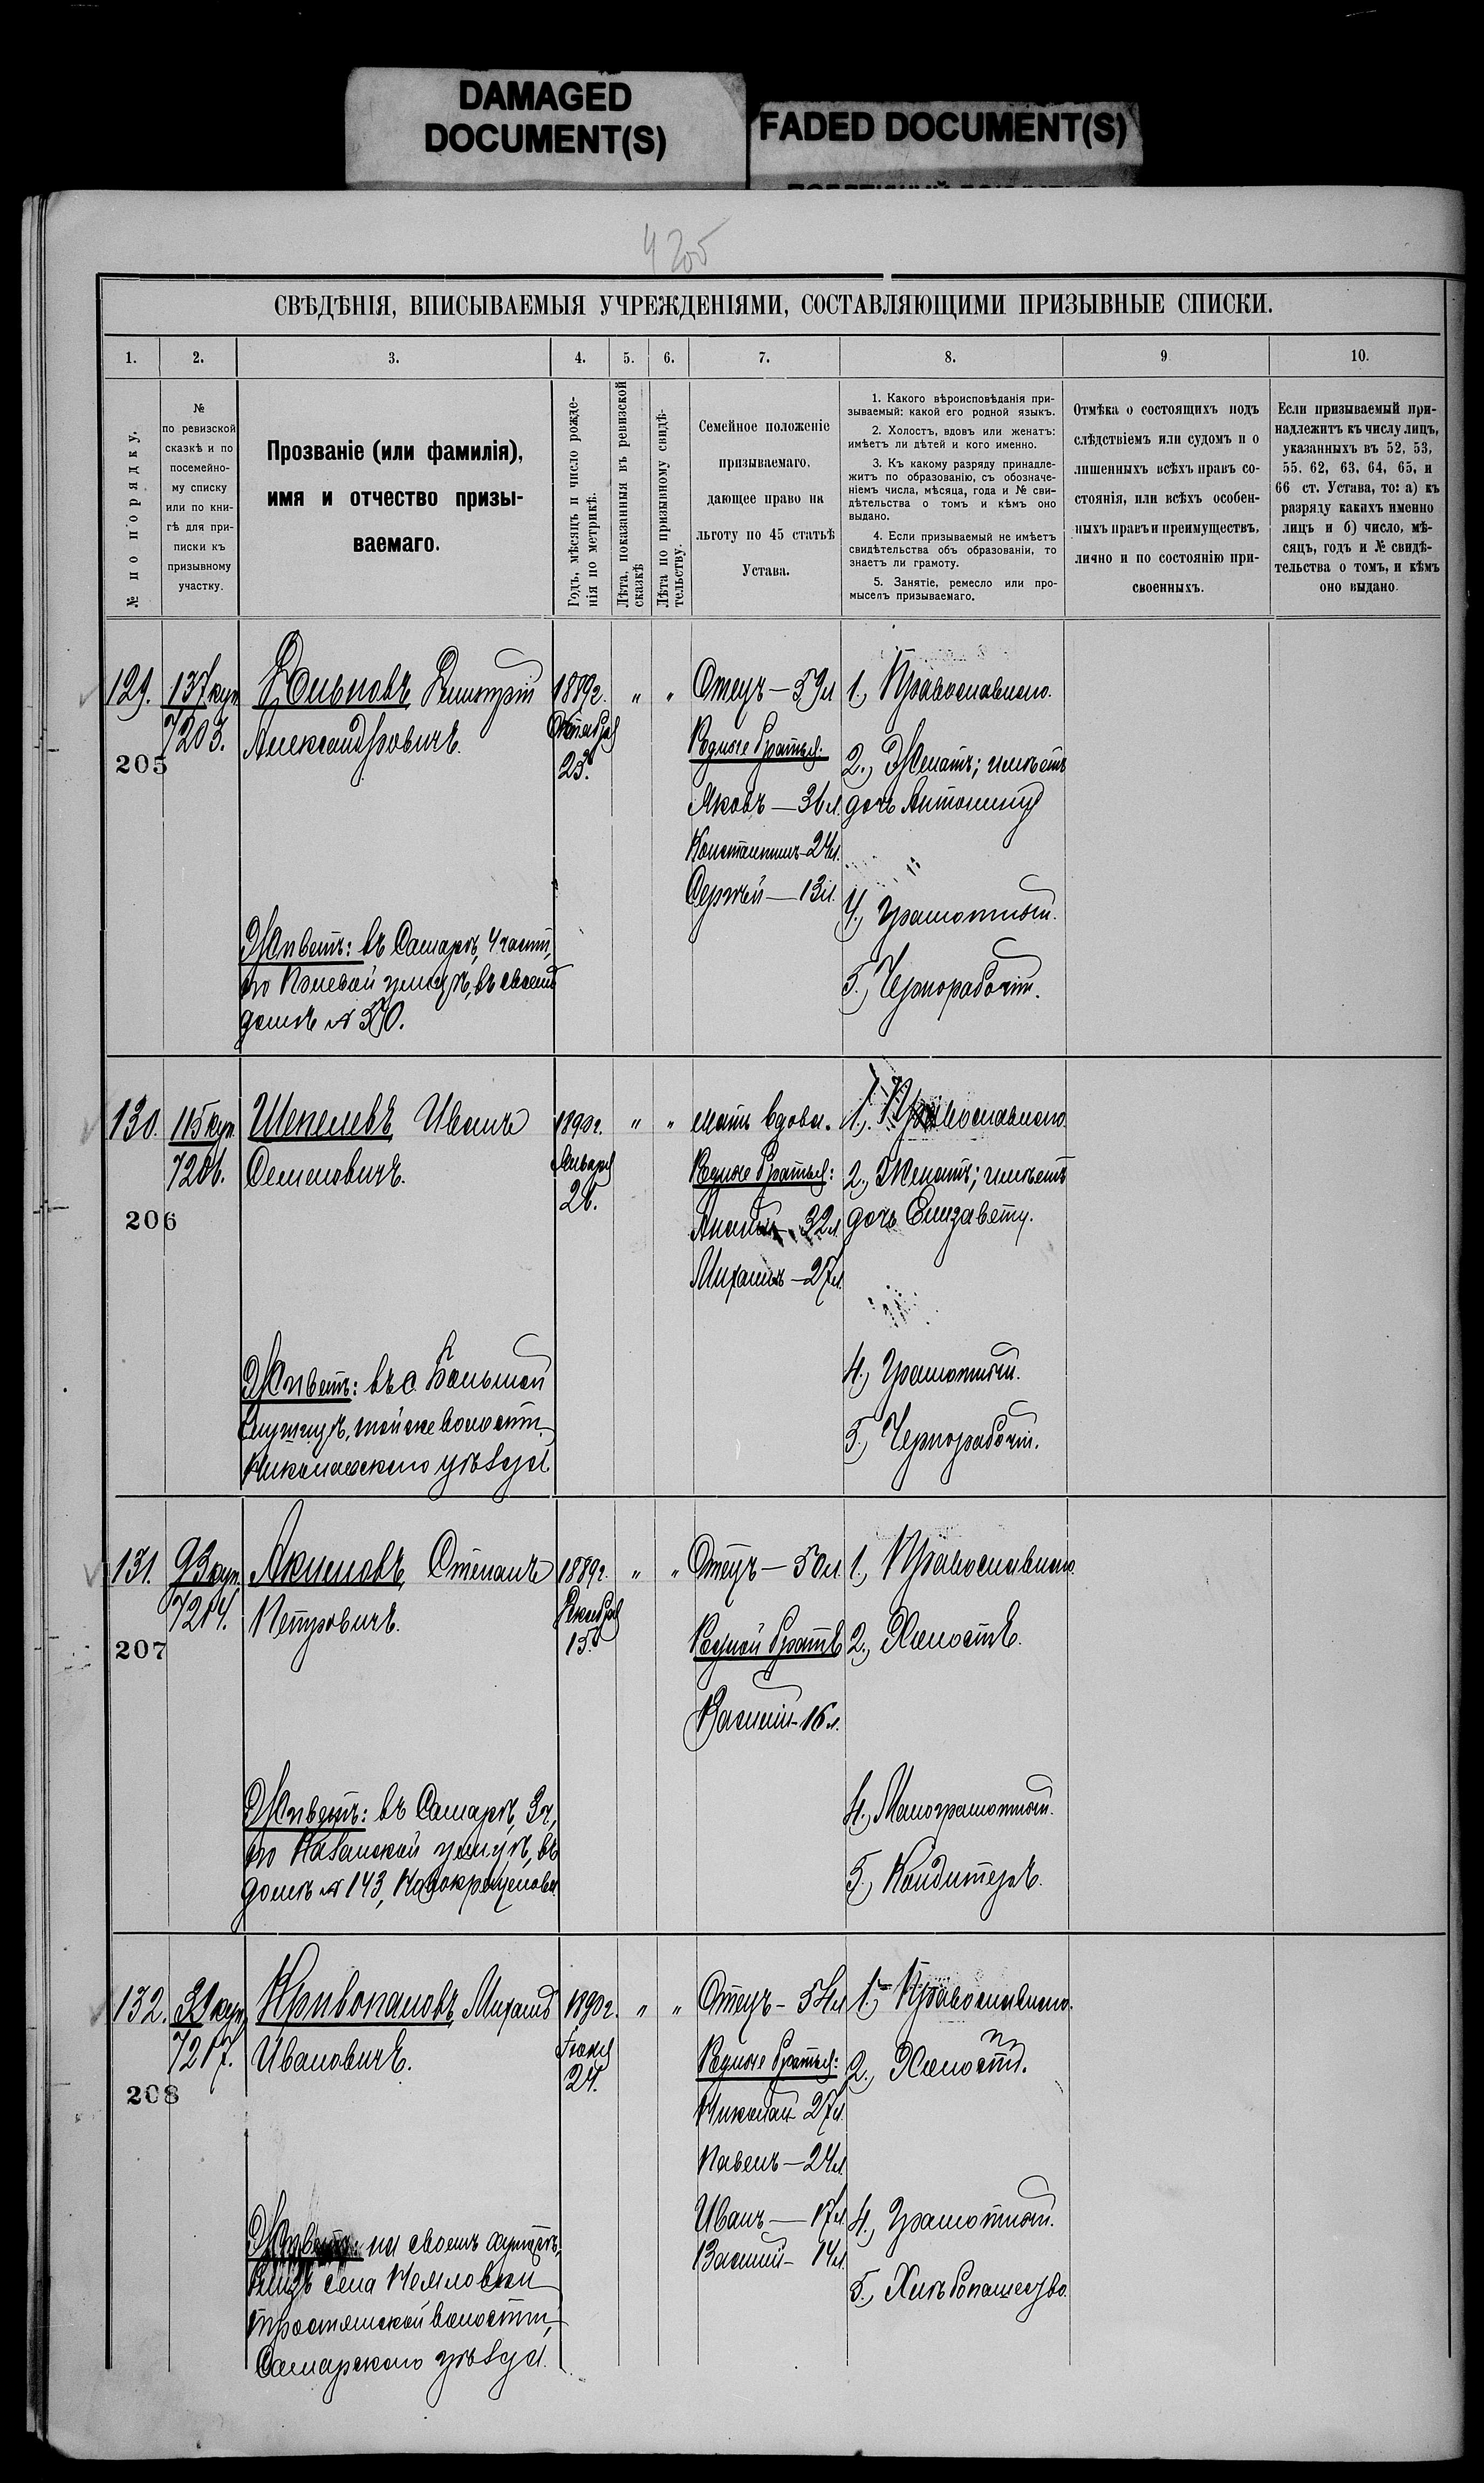 DAMAGED
DOCUMENT(S)
FADED DOCUMENT(S)
4205
СВѢДѢНІЯ, ВПИСЫВАЕМЫЯ УЧРЕЖДЕНІЯМИ, СОСТАВЛЯЮЩИМИ ПРИЗЫВНЫЕ СПИСКИ.
1.
2.
3.
4.
5.
6.
7.
8.
9
10.
№ по порядку.
№
по ревизской
сказкѣ и по
посемейно-
му списку
или по кни-
гѣ для при-
писки къ
призывному
участку.
Прозваніе (или фамилія),
имя и отчество призы-
ваемаго.
Годъ, мѣсяцъ и число рожде-
нія по метрикѣ.
Лѣта, показанныя въ ревизской
сказкѣ
Лѣта по призывному свидѣ-
тельству.
Семейное положеніе
призываемаго,
дающее право на
льготу по 45 статьѣ
Устава.
1. Какого вѣроисповѣданія при-
зываемый: какой его родной языкъ.
2. Холостъ, вдовъ или женатъ:
имѣетъ ли дѣтей и кого именно.
3. Къ какому разряду принадле-
житъ по образованію, съ обозначе-
ніемъ числа, мѣсяца, года и № сви-
дѣтельства о томъ и кѣмъ оно
выдано.
4. Если призываемый не имѣетъ
свидѣтельства объ образованіи, то
знаетъ ли грамоту.
5. Занятіе, ремесло или про-
мыселъ призываемаго.
Отмѣка о состоящихъ подъ
слѣдствіемъ или судомъ и о
лишенныхъ всѣхъ правъ со-
стоянія, или всѣхъ особен-
ныхъ правъ и преимуществъ,
лично и по состоянію при-
своенныхъ.
Если призываемый при-
надлежитъ къ числу лицъ,
указанныхъ въ 52, 53,
55. 62, 63, 64, 65, и
66 ст. Устава, то: а) къ
разряду какихъ именно
лицъ и б) число, мѣ-
сяцъ, годъ и № свидѣ-
тельства о томъ, и кѣмъ
оно выдано.
129.
137 куп.
7203.
205
Дмитрій
Александровичъ.
1889г.
Октября
23.
" "
Отецъ — 59л
Родные братья:
Яковъ — 36л.
Константинъ — 24л.
Сергѣй — 13л.
1, Православнаго.
2., Женатъ; имѣетъ
дочь Антонину
4., Грамотный.
5., Чернорабочій.
Живетъ: въ Самарѣ, 4 части,
по Полевой улицѣ, въ своемъ
домѣ №
130.
115 куп.
7206.
206
Шепелевъ Иванъ
Семеновичъ.
1890г.
Января
26.
" "
мать вдова.
Родные братья:
32л.
Михаилъ — 27л.
1., Православнаго
2., Женатъ; имѣетъ
дочь Елизавету.
4., Грамотный.
5., Чернорабочій.
Живетъ: въ с. Большой
Глушицѣ, той же волости
Николаевскаго уѣзда
131.
93 куп.
7204.
207
Акимовъ Степанъ
Петровичъ.
1889г.
Декабря
15.
" "
Отецъ — 50л
Родной братъ
Василій — 16л.
1., Православнаго
2., Холостъ.
4., Малограмотный.
5., Кондитеръ.
Живетъ: въ Самарѣ, 3ч,
по Казанской улицѣ, въ
домѣ № 143, Новокрещенова
132.
куп.
7217.
208
Кривопаловъ Михаилъ
Ивановичъ.
1890г.
24.
" "
Отецъ — 54л
Родные братья:
Николай 27л.
Павелъ — 24л
Иванъ — 17л.
Василій — 14л.
1., Православнаго.
2., Холостъ.
4., Грамотный.
5., Хлѣбопашество.
Живетъ: на своемъ хуторѣ,
близъ села
волости,
Самарскаго уѣзда.